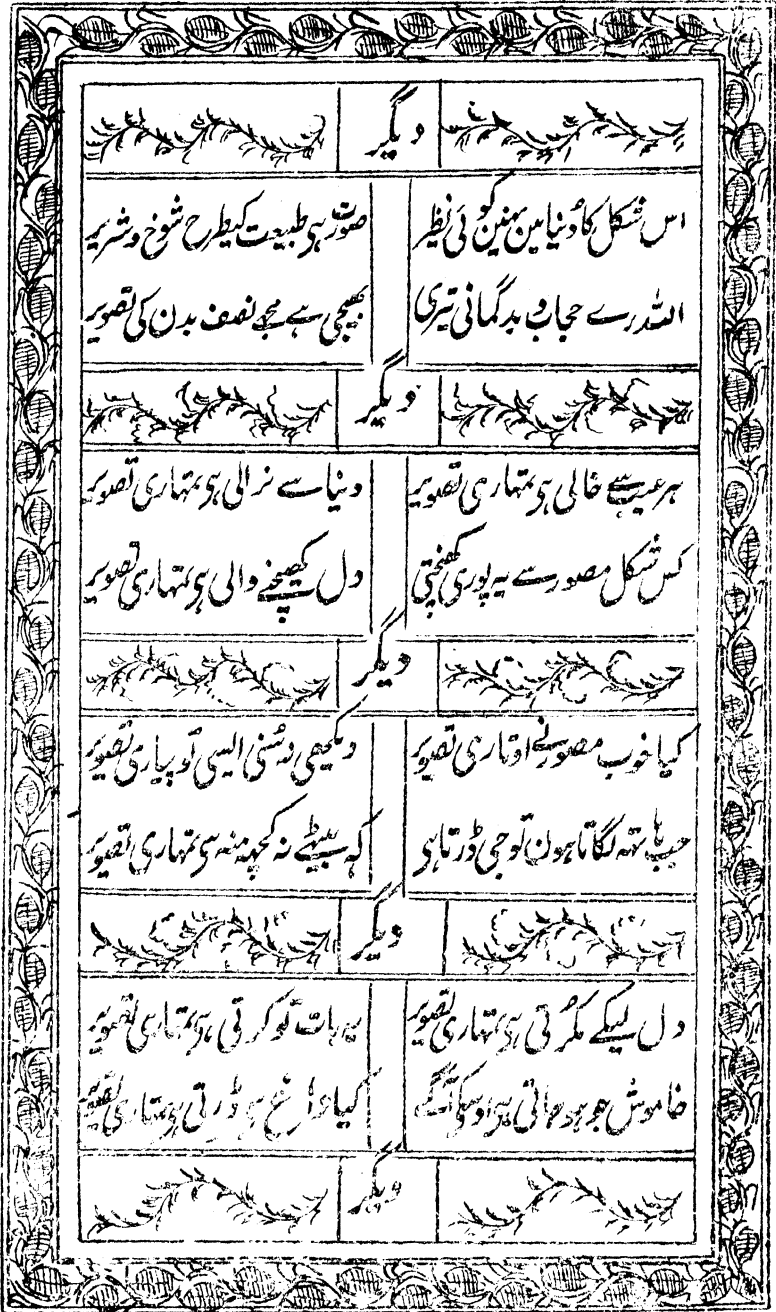 دیگر
اس شکل کا دُنیا مین نہین کوئی نظیر
صورت ہی طبیعت کیطرح شوخ و شریر
اللہ رے حجاب و بدگمانی تیری
بھیجی ہے مجھے نصف بدن کی تصویر
دیگر
ہر عیب سے خالی ہی تمہاری تصویر
دنیا سے نرالی ہی تمہاری تصویر
کس شکل مصور سے یہ پوری کھنچتی
دل کھینچنے والی ہی تمہاری تصویر
دیگر
کیا خوب مصور نے اوتاری تصویر
دیکھی نہ سُنی ایسی تو پیاری تصویر
جب ہاتہہ لگاتا ہون تو جی ڈرتا ہی
کہہ بیٹھے نہ کچہہ منہ سی تمہاری تصویر
دیگر
دل لیکے مکُرتی ہی تمہاری تصویر
یہ بات تو کرتی ہی تمہاری تصویر
خاموش جو ہو جاتی ہی اوسکے آگے
کیا داغ سے ڈرتی ہی تمہاری تصویر
دیگر